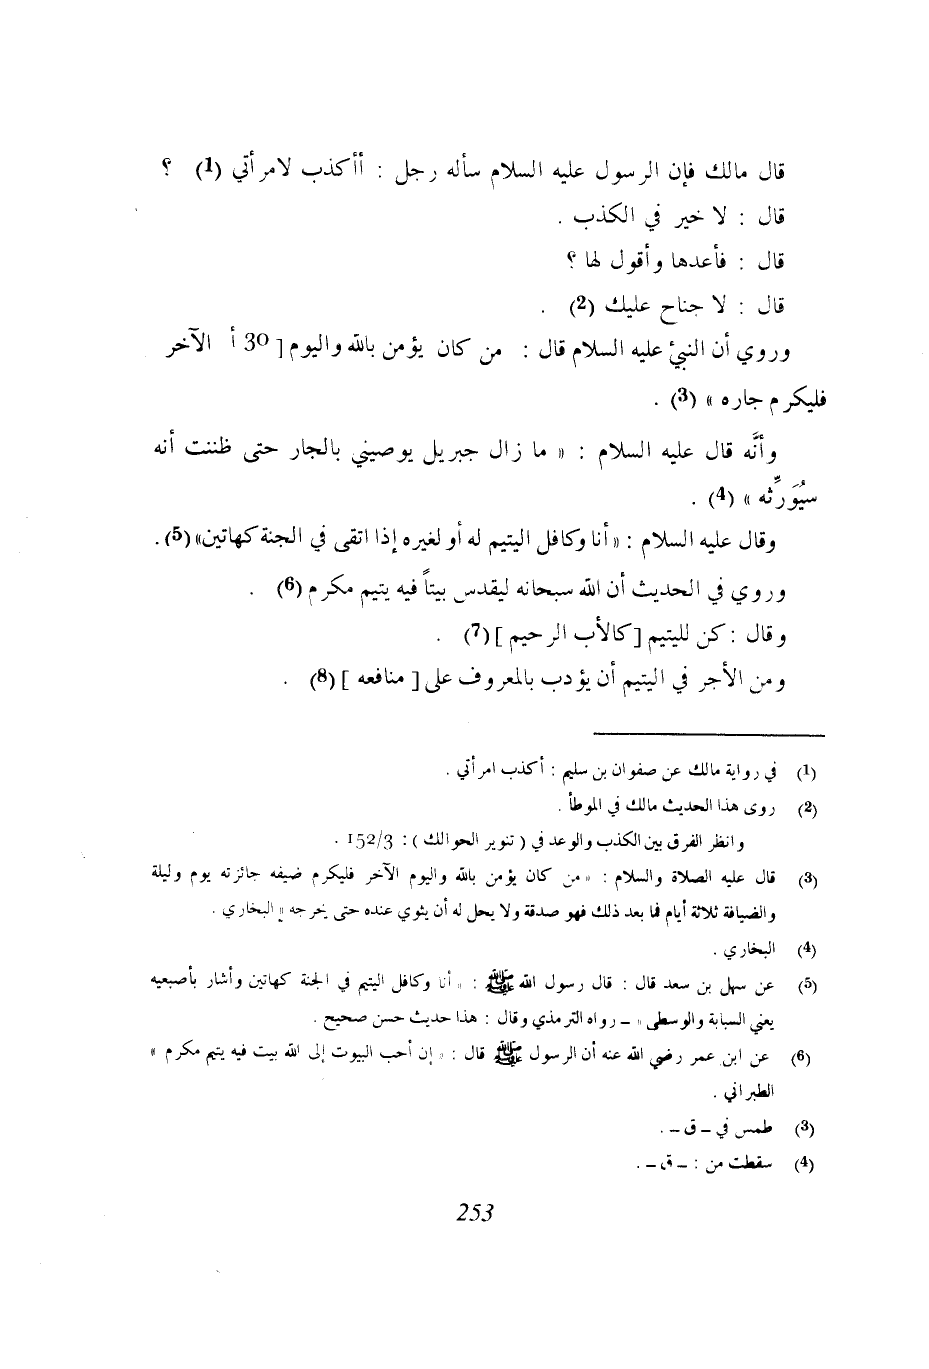 قال مالك فإن الرسول عليه السلام سأله رجل : أأكذب لامرأتي (1) ؟
قال : لا خير في الكذب .
قال : فأعدها وأقول لها ؟
قال : لا جناح عليك (2) .
وروي أن النبيّ عليه السلام قال : من كان يؤمن بالله واليوم [ 30 أ الآخر
فليكرم جاره » (3) .
وأنَّه قال عليه السلام : « ما زال جبريل يوصيني بالجار حتى ظننت أنه
سيُوَرِّثه » (4) .
وقال عليه السلام : « أنا وكافل اليتيم له أو لغيره إذا اتقى في الجنة كهاتين» (5) .
وروي في الحديث أن الله سبحانه ليقدس بيتاً فيه يتيم مكرم (6) .
وقال : كن لليتيم [كالأب الرحيم ] (7) .
ومن الأجر في اليتيم أن يؤدب بالمعروف على [ منافعه ] (8) .
(1) في رواية مالك عن صفوان بن سليم : أكذب امرأتي .
(2) روى هذا الحديث مالك في الموطأ .
وانظر الفرق بين الكذب والوعد في ( تنوير الحوالك ) : 152/3 .
(3) قال عليه الصلاة والسلام : « من كان يؤمن بالله واليوم الآخر فليكرم ضيفه جائزته يوم وليلة
والضيافة ثلاثة أيام فما بعد ذلك فهو صدقة ولا يحل له أن يثوي عنده حتى يخرجه » البخاري .
(4) البخاري .
(5) عن سهل بن سعد قال : قال رسول الله ﷺ : « أنا وكافل اليتيم في الجنة كهاتين وأشار بأصبعيه
يعني السبابة والوسطى » ـ رواه الترمذي وقال : هذا حديث حسن صحيح .
(6) عن ابن عمر رضي الله عنه أن الرسول ﷺ قال : « إن أحب البيوت إلى الله بيت فيه يتيم مكرم »
الطبراني .
(3) طمس في ـ ق ـ .
(4) سقطت من : ـ ق ـ .
253